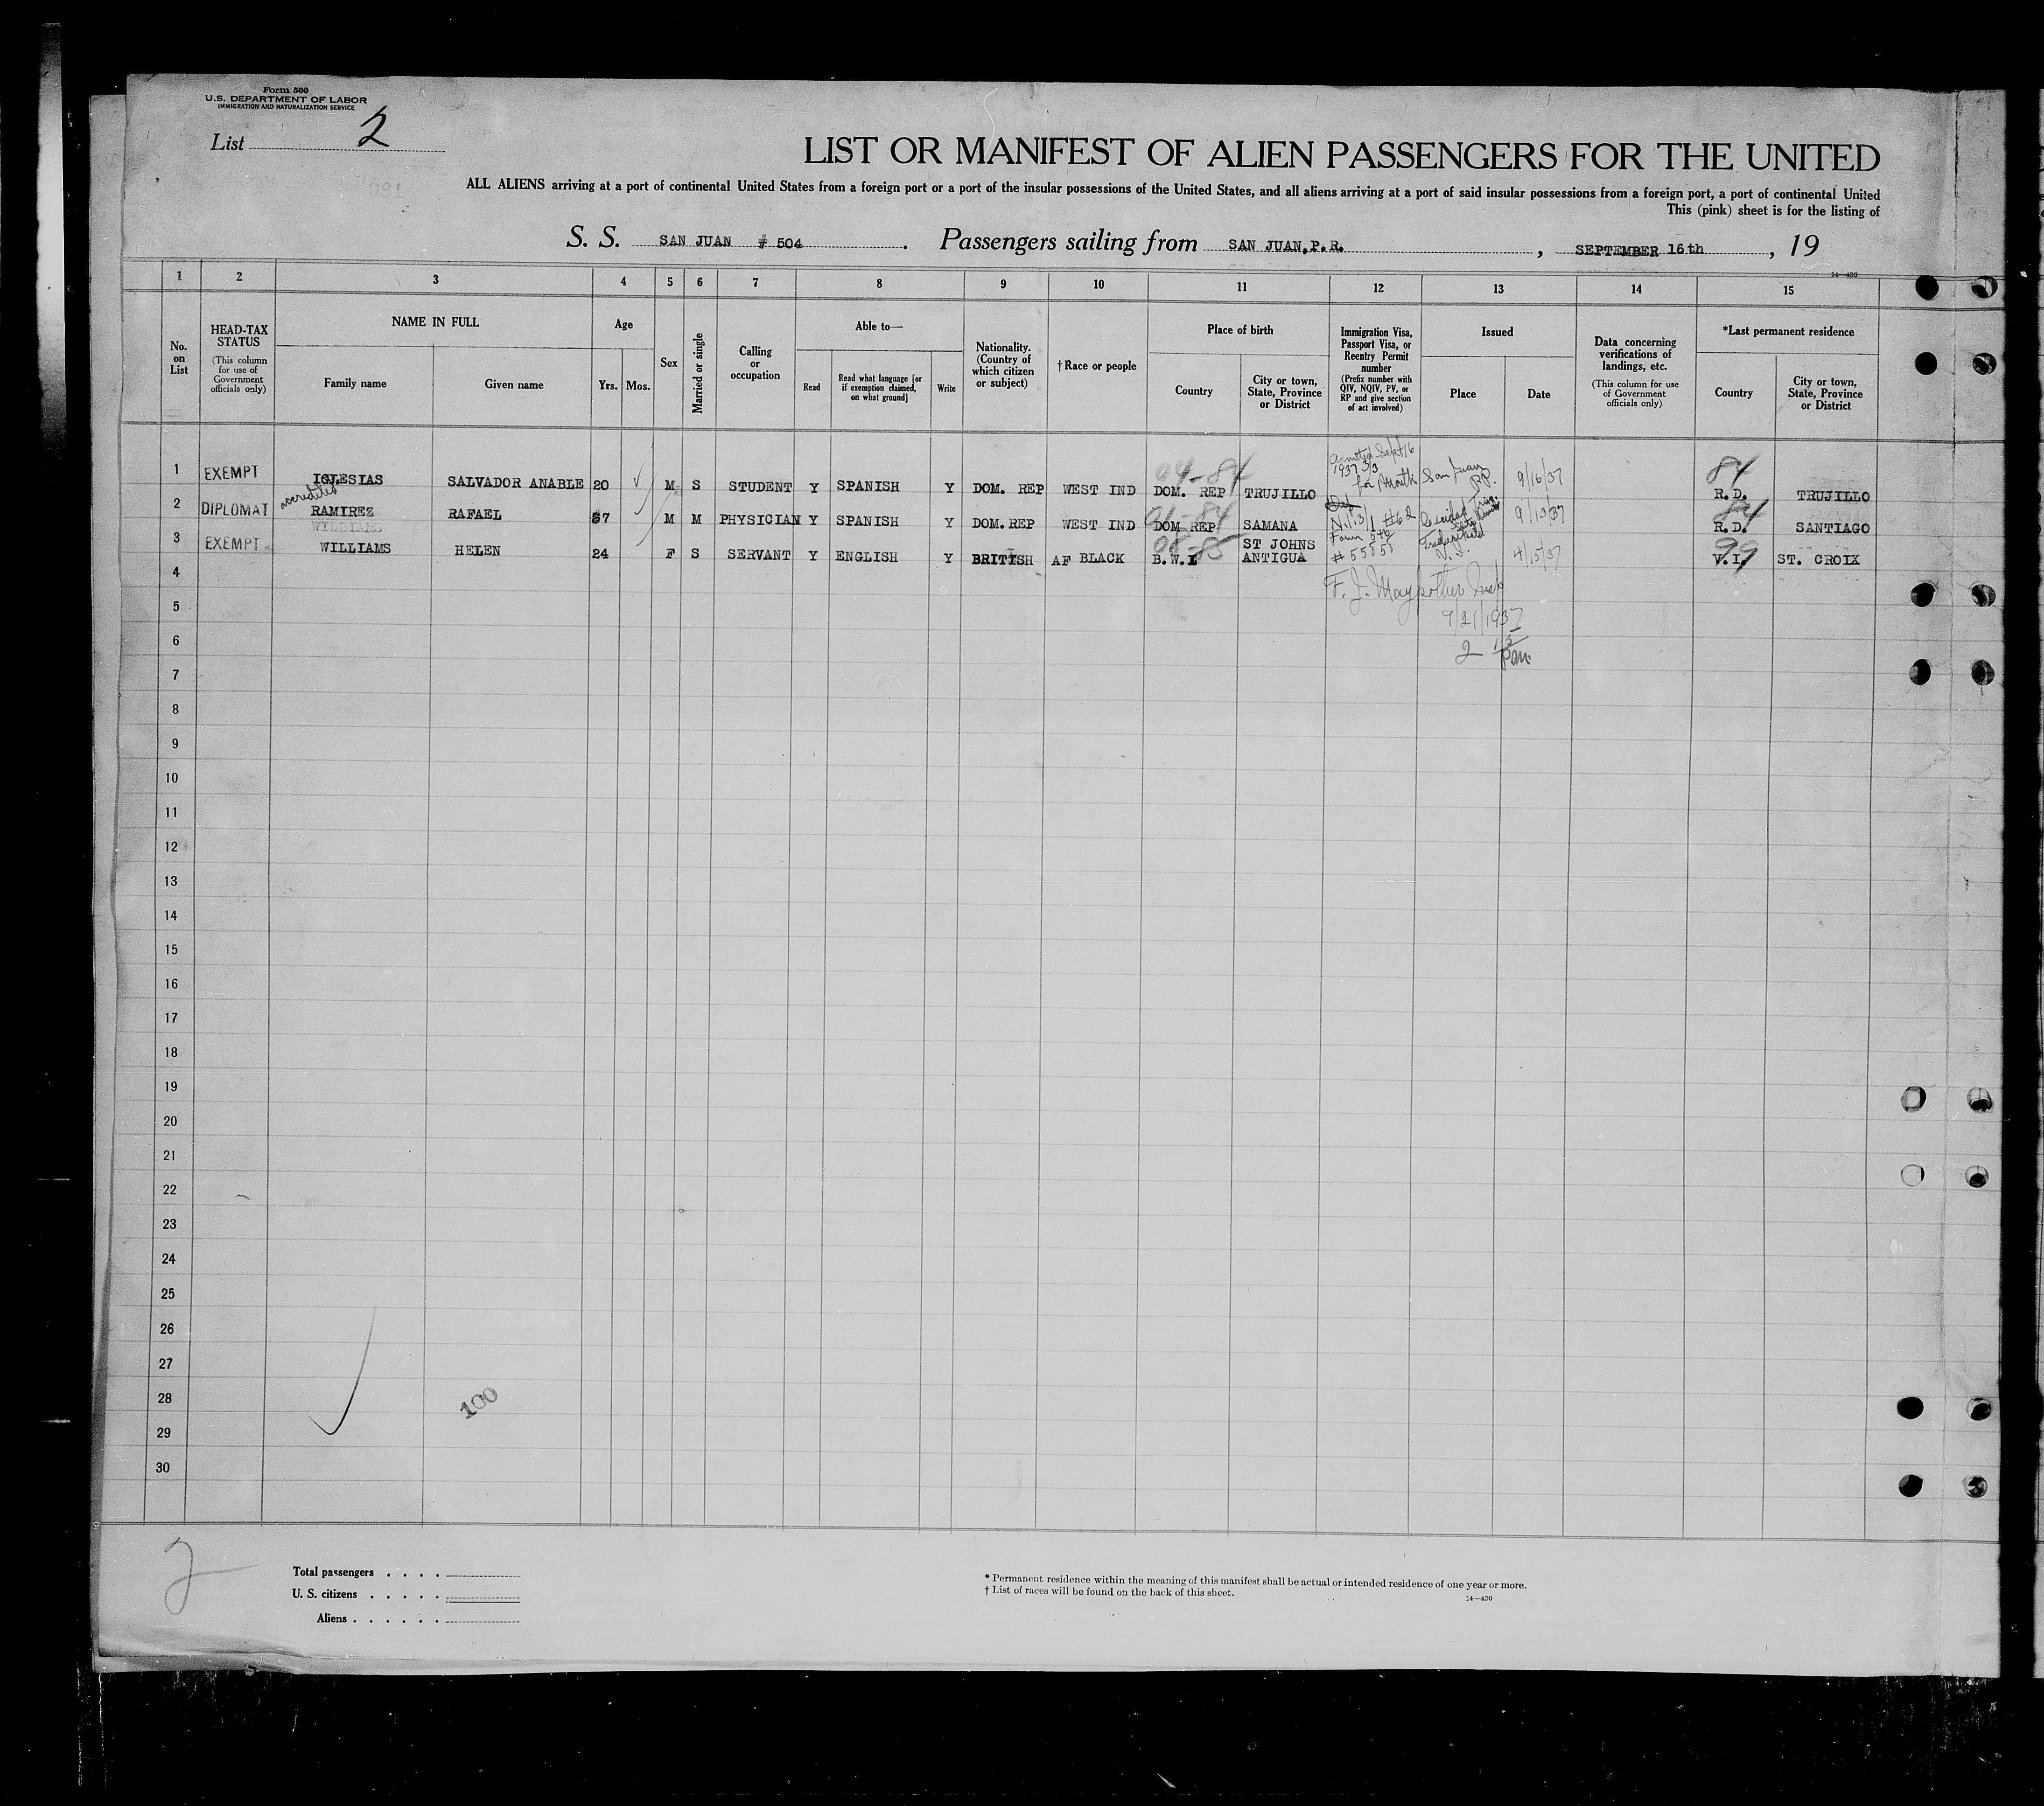 Form 500
U.S. DEPARTMENT OF LABOR
IMMIGRATION AND NATURALIZATION SERVICE
List 2
LIST OR MANIFEST OF ALIEN PASSENGERS FOR THE UNITED
ALL ALIENS arriving at a port of continental United States from a foreign port or a port of the insular possessions of the United States, and all aliens arriving at a port of said insular possessions from a foreign port, a port of continental United
This (pink) sheet is for the listing of
S. S. SAN JUAN # 504. Passengers sailing from SAN JUAN,P.R., SEPTEMBER 16th, 19
14—430
1 2 3 4 5 6 7 8 9 10 11 12 13 14 15
No. on List
HEAD-TAX STATUS
(This column for use of Government officials only)
NAME IN FULL
Family name
Given name
Age
Yrs. Mos.
Sex
Married or single
Calling or occupation
Able to—
Read
Read what language [or if exemption claimed, on what ground]
Write
Nationality. (Country of which citizen or subject)
† Race or people
Place of birth
Country
City or town, State, Province or District
Immigration Visa, Passport Visa, or Reentry Permit number
(Prefix number with QIV, NQIV, PV, or RP and give section of act involved)
Issued
Place
Date
Data concerning verifications of landings, etc.
(This column for use of Government officials only)
*Last permanent residence
Country
City or town, State, Province or District
Admitted Sept 16
1937 3/3
04-84
84
1 EXEMPT IGLESIAS SALVADOR ANABLE 20 M S STUDENT Y SPANISH Y DOM. REP WEST IND DOM. REP TRUJILLO for Months San Juan P.R. 9/16/37 R.D. TRUJILLO
accredited
2 DIPLOMAT RAMIREZ RAFAEL 37 M M PHYSICIAN Y SPANISH Y DOM.REP WEST IND DOM REP SAMANA #62 Ciudad 9/13/37 R.D. SANTIAGO
WILLIAMS
3 EXEMPT WILLIAMS HELEN 24 F S SERVANT Y ENGLISH Y BRITISH AF BLACK B.W.I ST JOHNS ANTIGUA V.I. 4/15/37 V.I. ST. CROIX
99
F. J. Maypother Insp
9/21/1937
2
4
5
6
7
8
9
10
11
12
13
14
15
16
17
18
19
20
21
22
23
24
25
26
27
28
100
29
30
2
Total passengers . . . .
U. S. citizens . . . . .
Aliens . . . . . .
* Permanent residence within the meaning of this manifest shall be actual or intended residence of one year or more.
† List of races will be found on the back of this sheet.
14—430